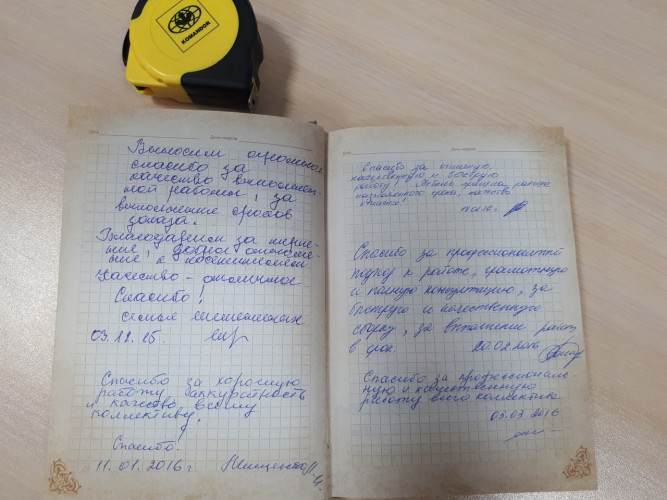 KOMANDOR
Выносим огромное
спасибо за
качество выполнен-
ной работы, за
выполнение сроков
заказа.
Благодарим за
качество - отличное
Спасибо!
семья
03.11.15.
Спасибо за хорошую
работу, аккуратность
и качество всему
коллективу.
Спасибо!
11.01.2016 г
Спасибо за отличную,
качественную и быструю
работу! Мебель пришла раньше
назначенного срока, качество
отличное!
Спасибо за профессиональный
подход к работе, грамотную
и полную консультацию, за
быструю и качественную
сборку, за выполнение работ
в срок. 20.02.2016
Спасибо за профессиональ-
ную и качественную
работу всего коллектива
03.03.2016